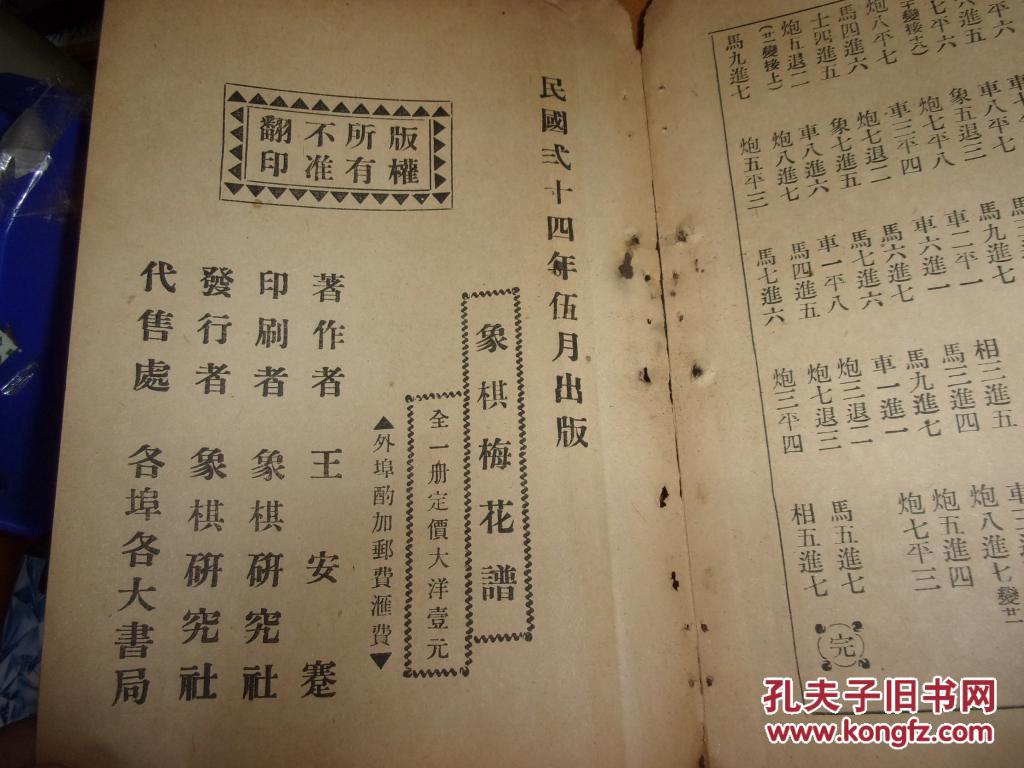 平六
六進五
七平六
炮八平七
馬四進六
士四進五
炮五退二
(廿變接上)
馬九進七
車八平七
象五退三
炮七平八
車二平四
炮七退二
象七進五
車八進六
炮八進七
炮五平三
馬九進七
車二平一
車六進一
馬六進七
馬七進六
車一平八
馬四進五
馬七進六
相三進五
馬三進四
馬九進七
車一進一
炮三退二
炮七退三
炮三平四
炮八進七變廿
炮五進四
炮七平三
馬五進七
相五進七
完
民國弍十四年伍月出版
象棋梅花譜
全一册定價大洋壹元
▲外埠酌加郵費滙費▼
著作者 王安蹇
印刷者 象棋研究社
發行者 象棋研究社
代售處 各埠各大書局
版權
所有
不准
翻印
孔夫子旧书网
www.kongfz.com